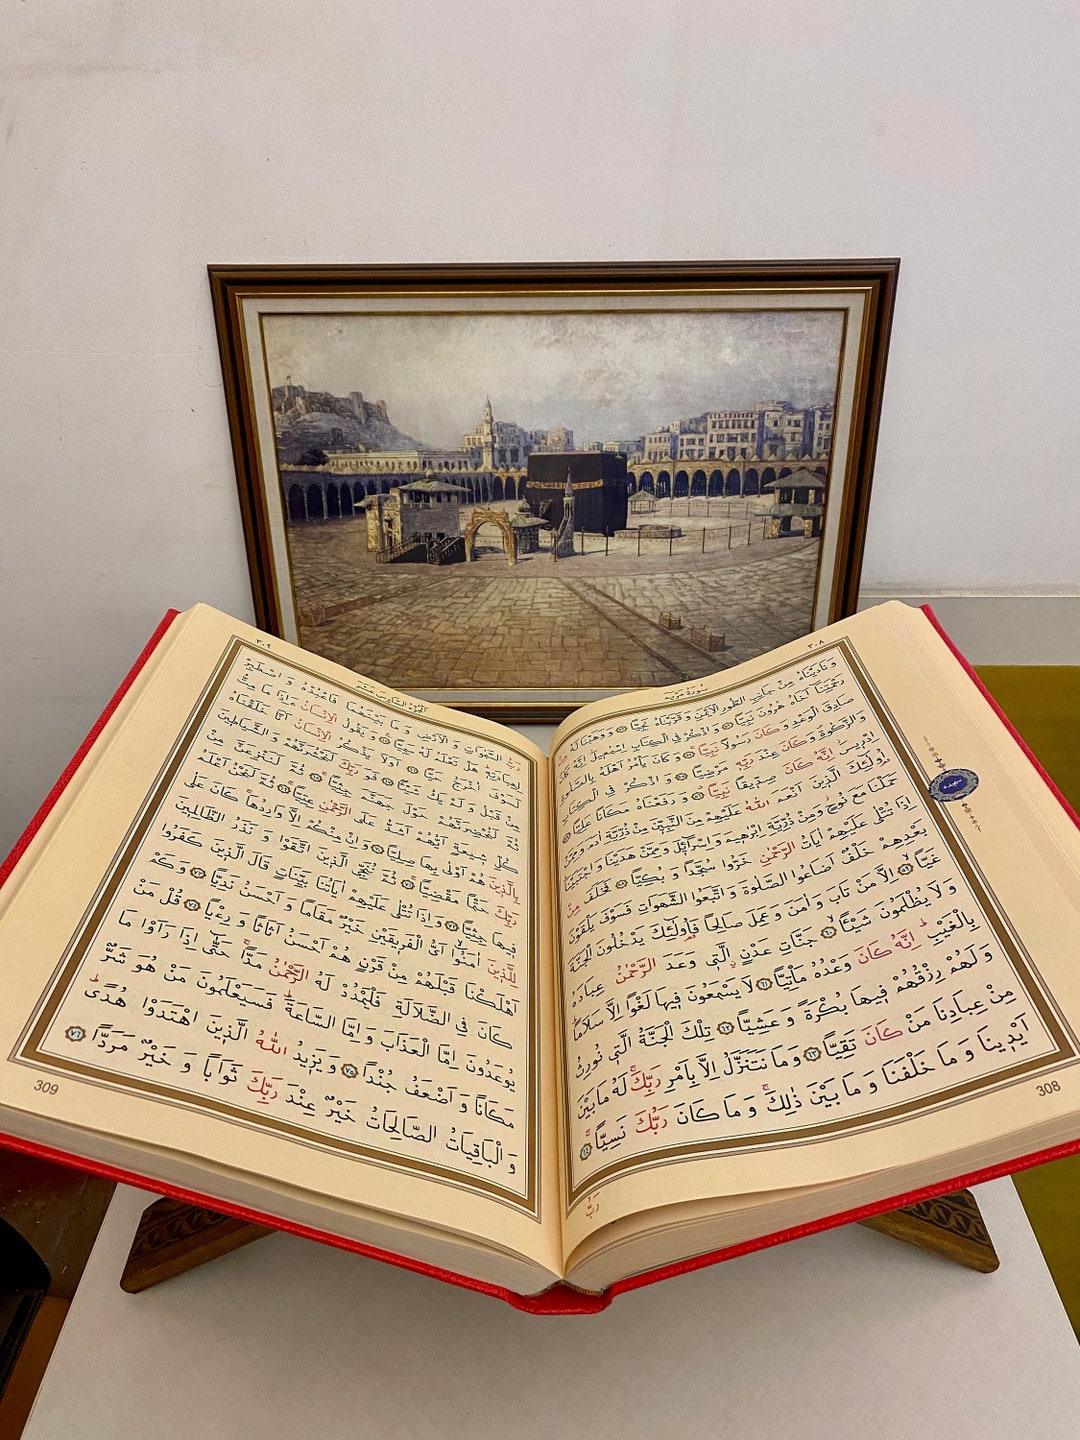 ٣٠٨
سُورَةُ مَرْيَمَ
وَنَادَيْنَاهُ مِنْ جَانِبِ الطُّورِ الْاَيْمَنِ وَقَرَّبْنَاهُ نَجِيًّا ٥٢ وَوَهَبْنَا لَهُ
مِنْ رَحْمَتِنَا اَخَاهُ هٰرُونَ نَبِيًّا ٥٣ وَاذْكُرْ فِي الْكِتَابِ اِسْمٰعِيلَ اِنَّهُ كَانَ
صَادِقَ الْوَعْدِ وَكَانَ رَسُولًا نَبِيًّا ٥٤ وَكَانَ يَأْمُرُ اَهْلَهُ بِالصَّلٰوةِ
وَالزَّكٰوةِ وَكَانَ عِنْدَ رَبِّهِ مَرْضِيًّا ٥٥ وَاذْكُرْ فِي الْكِتَابِ
اِدْرِيسَ اِنَّهُ كَانَ صِدِّيقًا نَبِيًّا ٥٦ وَرَفَعْنَاهُ مَكَانًا عَلِيًّا ٥٧
اُولٰئِكَ الَّذِينَ اَنْعَمَ اللّٰهُ عَلَيْهِمْ مِنَ النَّبِيِّنَ مِنْ ذُرِّيَّةِ اٰدَمَ وَمِمَّنْ
حَمَلْنَا مَعَ نُوحٍ وَمِنْ ذُرِّيَّةِ اِبْرٰهِيمَ وَاِسْرَائِلَ وَمِمَّنْ هَدَيْنَا وَاجْتَبَيْنَا
اِذَا تُتْلٰى عَلَيْهِمْ اٰيَاتُ الرَّحْمٰنِ خَرُّوا سُجَّدًا وَبُكِيًّا ٥٨ فَخَلَفَ مِنْ
بَعْدِهِمْ خَلْفٌ اَضَاعُوا الصَّلٰوةَ وَاتَّبَعُوا الشَّهَوَاتِ فَسَوْفَ يَلْقَوْنَ
غَيًّا ٥٩ اِلَّا مَنْ تَابَ وَاٰمَنَ وَعَمِلَ صَالِحًا فَاُولٰئِكَ يَدْخُلُونَ الْجَنَّةَ
وَلَا يُظْلَمُونَ شَيْئًا ٦٠ جَنَّاتِ عَدْنٍ الَّتِي وَعَدَ الرَّحْمٰنُ عِبَادَهُ
بِالْغَيْبِ اِنَّهُ كَانَ وَعْدُهُ مَأْتِيًّا ٦١ لَا يَسْمَعُونَ فِيهَا لَغْوًا اِلَّا سَلَامًا
وَلَهُمْ رِزْقُهُمْ فِيهَا بُكْرَةً وَعَشِيًّا ٦٢ تِلْكَ الْجَنَّةُ الَّتِي نُورِثُ
مِنْ عِبَادِنَا مَنْ كَانَ تَقِيًّا ٦٣ وَمَا نَتَنَزَّلُ اِلَّا بِاَمْرِ رَبِّكَ لَهُ مَا بَيْنَ
اَيْدِينَا وَمَا خَلْفَنَا وَمَا بَيْنَ ذٰلِكَ وَمَا كَانَ رَبُّكَ نَسِيًّا ٦٤
رَبُّ
سجده
308
٣٠٩
اَلْجُزْءُ السَّادِسُ عَشَرَ
رَبُّ السَّمٰوَاتِ وَالْاَرْضِ وَمَا بَيْنَهُمَا فَاعْبُدْهُ وَاصْطَبِرْ
لِعِبَادَتِهِ هَلْ تَعْلَمُ لَهُ سَمِيًّا ٦٥ وَيَقُولُ الْاِنْسَانُ ءَاِذَا مَا مِتُّ
لَسَوْفَ اُخْرَجُ حَيًّا ٦٦ اَوَلَا يَذْكُرُ الْاِنْسَانُ اَنَّا خَلَقْنَاهُ
مِنْ قَبْلُ وَلَمْ يَكُ شَيْئًا ٦٧ فَوَ رَبِّكَ لَنَحْشُرَنَّهُمْ وَالشَّيَاطِينَ
ثُمَّ لَنُحْضِرَنَّهُمْ حَوْلَ جَهَنَّمَ جِثِيًّا ٦٨ ثُمَّ لَنَنْزِعَنَّ مِنْ
كُلِّ شِيعَةٍ اَيُّهُمْ اَشَدُّ عَلَى الرَّحْمٰنِ عِتِيًّا ٦٩ ثُمَّ لَنَحْنُ اَعْلَمُ
بِالَّذِينَ هُمْ اَوْلٰى بِهَا صِلِيًّا ٧٠ وَاِنْ مِنْكُمْ اِلَّا وَارِدُهَا كَانَ عَلٰى
رَبِّكَ حَتْمًا مَقْضِيًّا ٧١ ثُمَّ نُنَجِّي الَّذِينَ اتَّقَوْا وَنَذَرُ الظَّالِمِينَ
فِيهَا جِثِيًّا ٧٢ وَاِذَا تُتْلٰى عَلَيْهِمْ اٰيَاتُنَا بَيِّنَاتٍ قَالَ الَّذِينَ كَفَرُوا
لِلَّذِينَ اٰمَنُوا اَيُّ الْفَرِيقَيْنِ خَيْرٌ مَقَامًا وَاَحْسَنُ نَدِيًّا ٧٣ وَكَمْ
اَهْلَكْنَا قَبْلَهُمْ مِنْ قَرْنٍ هُمْ اَحْسَنُ اَثَاثًا وَرِءْيًا ٧٤ قُلْ مَنْ
كَانَ فِي الضَّلَالَةِ فَلْيَمْدُدْ لَهُ الرَّحْمٰنُ مَدًّا حَتّٰى اِذَا رَاَوْا مَا
يُوعَدُونَ اِمَّا الْعَذَابَ وَاِمَّا السَّاعَةَ فَسَيَعْلَمُونَ مَنْ هُوَ شَرٌّ
مَكَانًا وَاَضْعَفُ جُنْدًا ٧٥ وَيَزِيدُ اللّٰهُ الَّذِينَ اهْتَدَوْا هُدًى
وَالْبَاقِيَاتُ الصَّالِحَاتُ خَيْرٌ عِنْدَ رَبِّكَ ثَوَابًا وَخَيْرٌ مَرَدًّا ٧٦
309